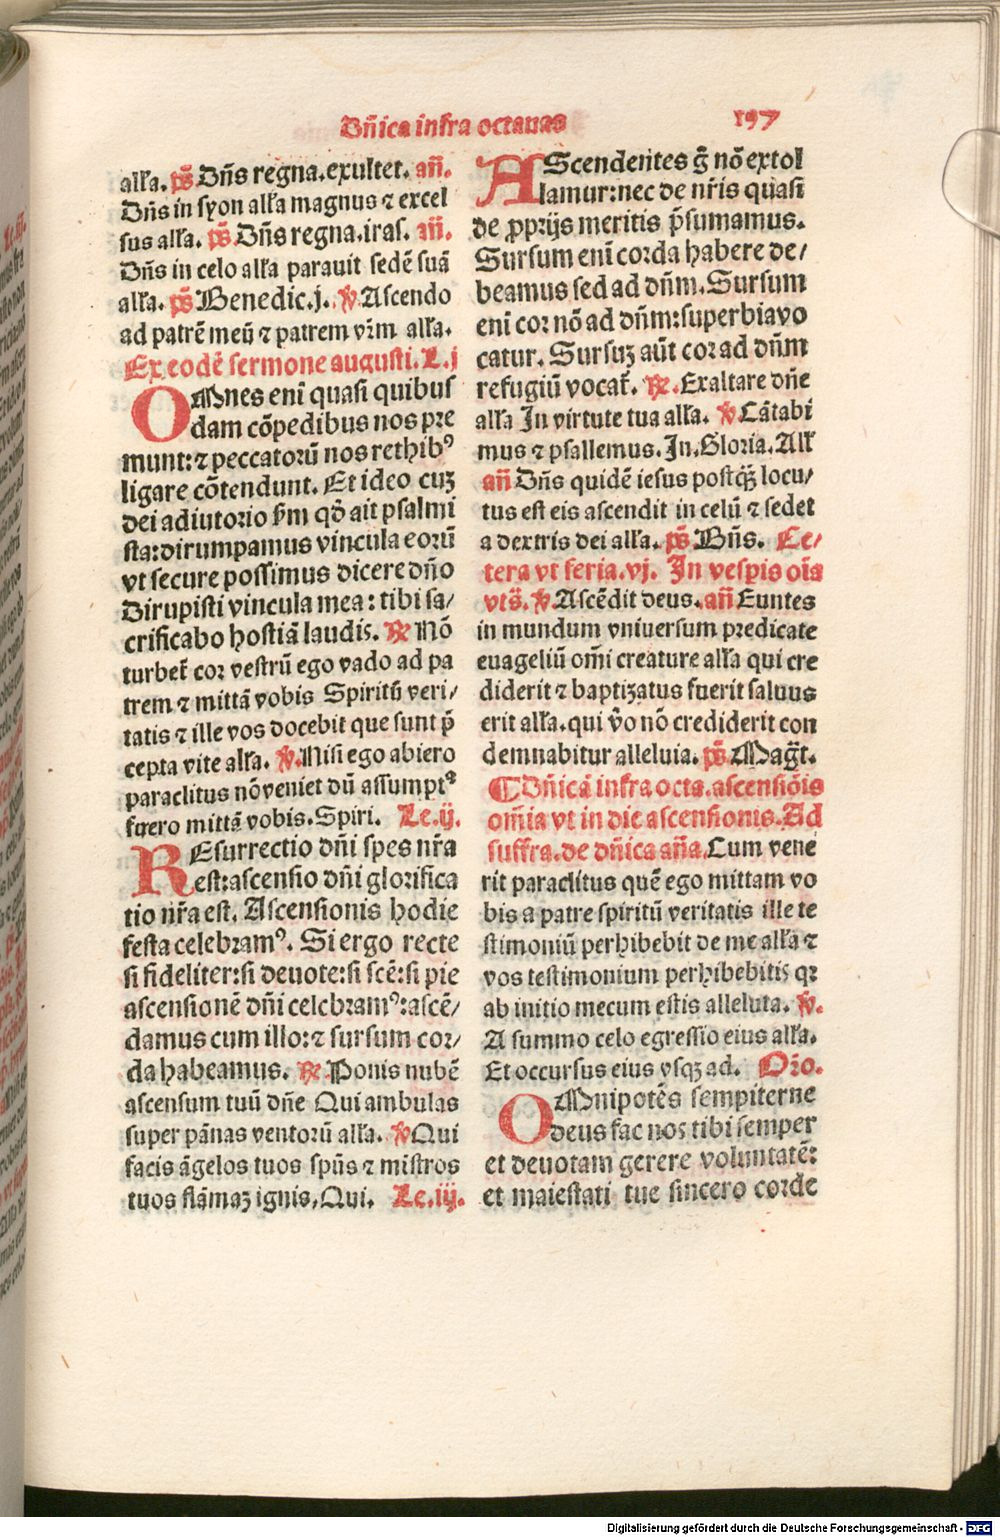 Dñica infra octauas 197
alĺa. ps̄ Dñs regna.exultet. añ.
Dñs in syon alĺa magnus ⁊ excel
sus alĺa. ps̄ Dñs regna.iras. añ.
Dñs in celo alĺa parauit sedē suā
alĺa. ps̄ Benedic.j. ℣ Ascendo
ad patrē meū ⁊ patrem vr̄m alĺa.
Ex eodē sermone augusti. L.j
OMnes eni quasi quibus
dam cōpedibus nos pre
munt:⁊ peccatorū nos rethibꝰ
ligare cōtendunt. Et ideo cuꝫ
dei adiutorio ẜm qō ait psalmi
sta:dirumpamus vincula eorū
vt secure possimus dicere dn̄o
Dirupisti vincula mea: tibi sa/
crificabo hostiā laudis. ℟ Nō
turbet̉ cor vestrū ego vado ad pa
trem ⁊ mittā vobis Spiritū veri/
tatis ⁊ ille vos docebit que sunt p̄
cepta vite alĺa. ℣ Nisi ego abiero
paraclitus nō veniet dū assumptꝰ
fuero mittā vobis. Spiri. Le.ij.
REsurrectio dñi spes nr̄a
est:ascensio dñi glorifica
tio nr̄a est. Ascensionis hodie
festa celebramꝰ. Si ergo recte
si fideliter:si deuote:si scē:si pie
ascensionē dñi celebramꝰ:ascē/
damus cum illo:⁊ sursum cor/
da habeamus. ℟ Ponis nubē
ascensum tuū dñe Qui ambulas
super pānas ventorū alĺa. ℣ Qui
facis āgelos tuos spūs ⁊ mistros
tuos flāmaꝫ ignis, Qui. Le.iij.
AScendentes g̊ nō extol
lamur:nec de nr̄is quasi
de ꝓprijs meritis p̄sumamus.
Sursum eni corda habere de/
beamus sed ad dn̄m. Sursum
eni cor nō ad dn̄m:superbia vo
catur. Sursuꝫ aūt cor ad dn̄m
refugiū vocat̉. ℟. Exaltare dñe
alĺa In virtute tua alĺa. ℣ Cātabi
mus ⁊ psallemus. In. Gloria. Alĺ
añ Dñs quidē iesus postq̄ꝫ locu/
tus est eis ascendit in celū ⁊ sedet
a dextris dei alĺa. ps̄ Bñs. Ce/
tera vt feria.vj. In vesꝑis oīa
vts̄. ℣ Ascēdit deus. añ Euntes
in mundum vniuersum predicate
euageliū om̄i creature alĺa qui cre
diderit ⁊ baptizatus fuerit saluus
erit alĺa. qui v̄o nō crediderit con
demnabitur alleluia. ps̄ Mag̅t.
⸿ Dñicā infra octa. ascensiōis
om̄ia vt in die ascensionis. Ad
suffra. de dñica aña. Cum vene
rit paraclitus quē ego mittam vo
bis a patre spiritū veritatis ille te
stimoniū perhibebit de me alĺa ⁊
vos testimonium perhibebitis qꝛ
ab initio mecum estis alleluia. ℣.
A summo celo egressio eius alĺa.
Et occursus eius vsqꝫ ad. Or̄o.
OMnipotēs sempiterne
deus fac nos tibi semper
et deuotam gerere voluntatē:
et maiestati tue sincero corde
Digitalisierung gefördert durch die Deutsche Forschungsgemeinschaft - DFG